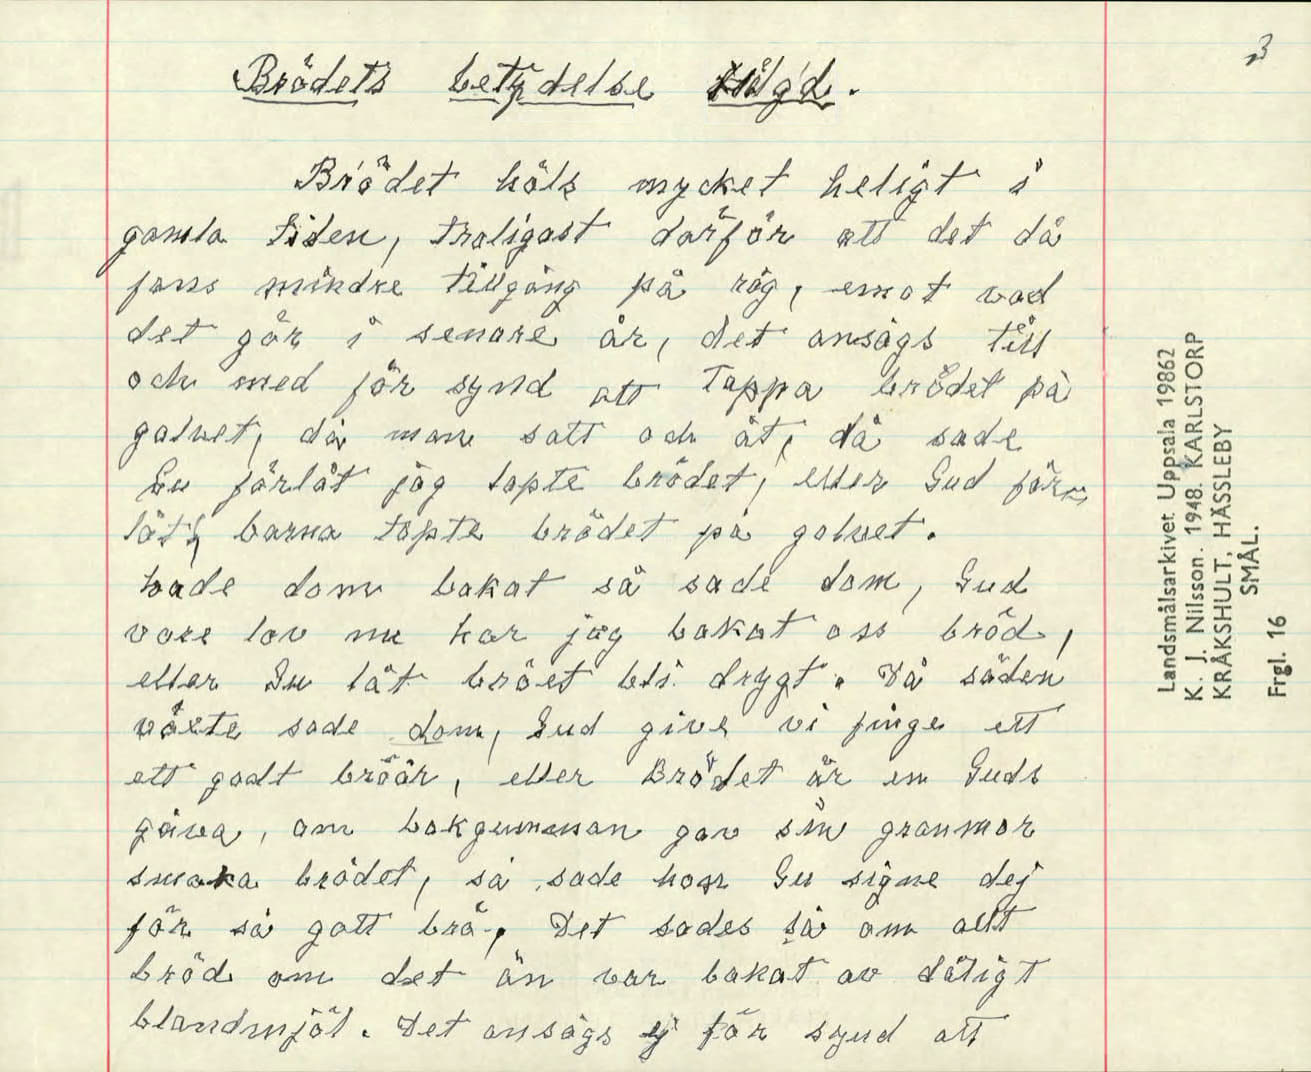 3
Brödets betydelse
Brödet höls mycket heligt i
gamla tiden, troligast därför att det då
fans mindre tillgång på råg, emot vad
det gör i senare år, det ansågs till
och med för synd att Tappa brödet på
golvet, då man satt och åt, då sade
Gu förlåt jag tapte brödet, eller Gud för=
låt, barna tapte brödet på golvet.
hade dom bakat så sade dom, Gud
vare lov nu har jag bakat oss bröd,
eller Gu låt bröet bli drygt. Då säden
växte sade dom, Gud give vi finge ett
ett godt bröår, eller Brödet är en Guds
gåva, om bakgumman gav sin grannar
smaka brödet, så sade hon Gu signe dej
för så gott brö, Det sades så om allt
bröd om det än var bakat av dåligt
blandmjöl. Det ansågs ej för synd att
Landsmålsarkivet Uppsala 19862
K. J. Nilsson. 1948. KARLSTORP
KRÅKSHULT, HÄSSLEBY
SMÅL.
Frgl. 16